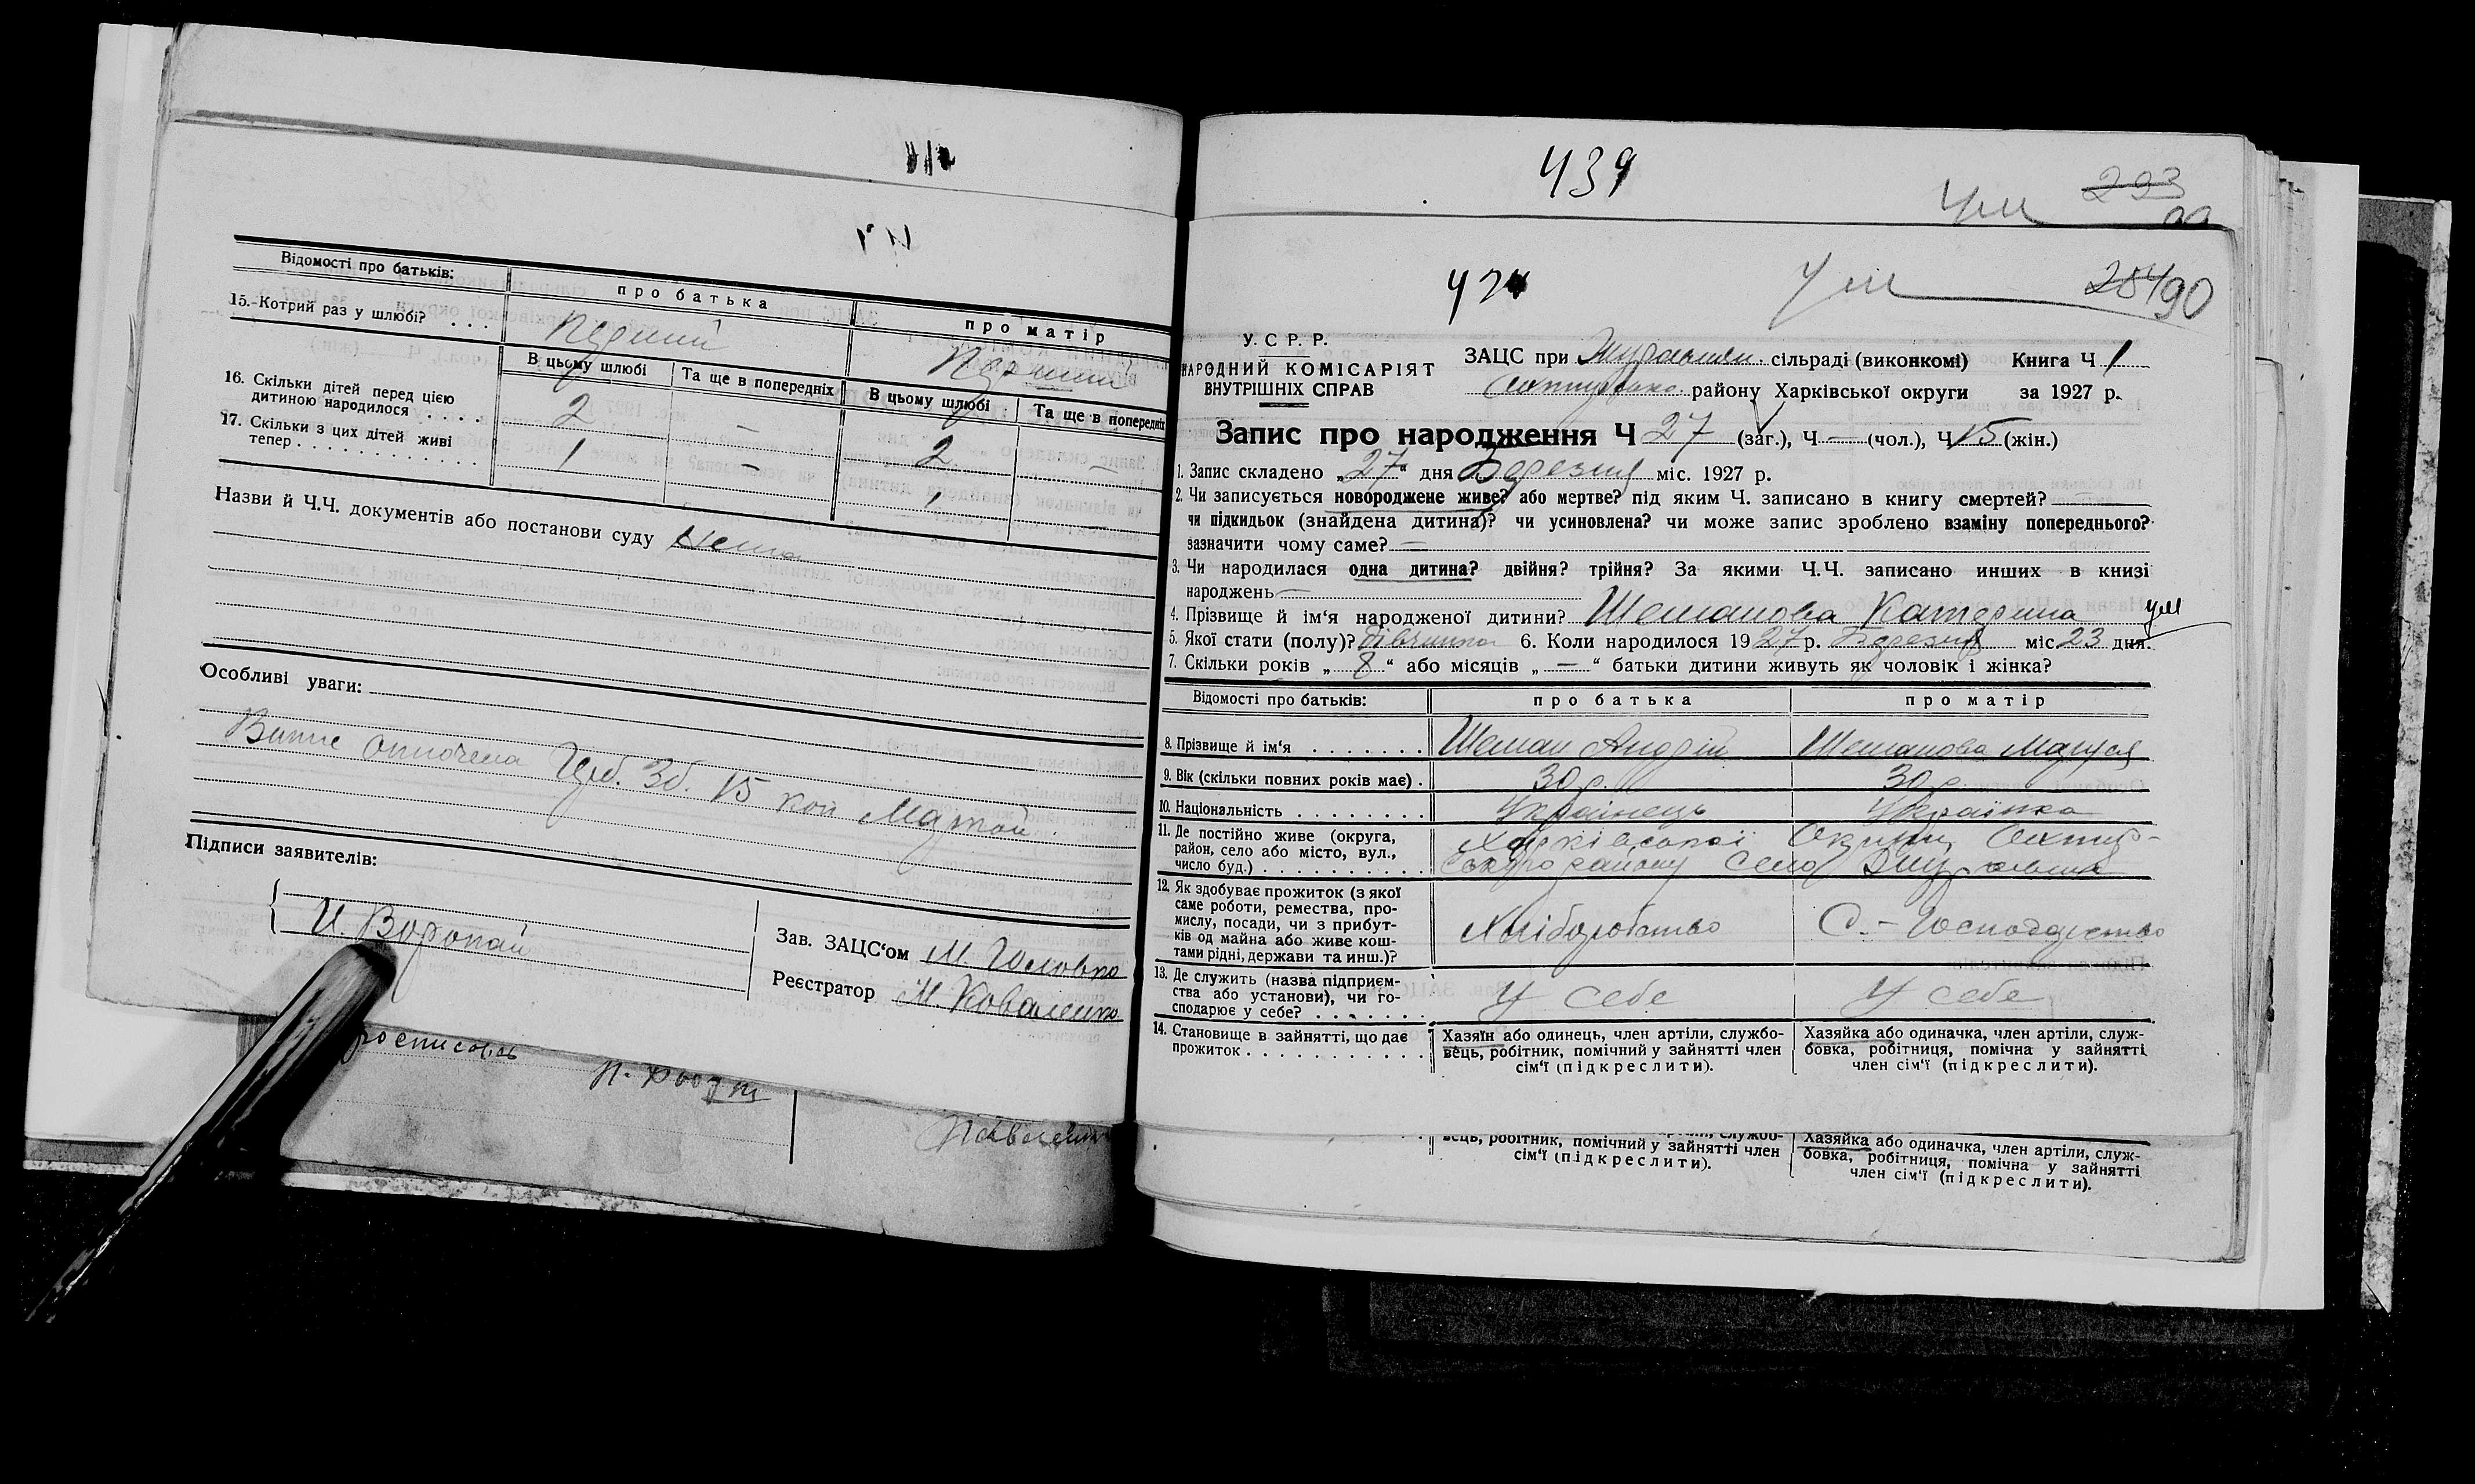 Відомості про батьків:
про батька
про матір
15. Котрий раз у шлюбі? . . .
Перший
Перший
В цьому шлюбі
Та ще в попередніх
В цьому шлюбі
Та ще в попередніх
16. Скільки дітей перед цією
дитиною народилося . . . .
2
—
2
—
17. Скільки з цих дітей живі
тепер . . . . . . . . . . . .
1
—
1
—
Назви й Ч.Ч. документів або постанови суду Нема
Особливі уваги:
15 коп
Підписи заявителів:
И. Воропай
Зав. ЗАЦС‘ом М. Головко
Реєстратор М. Коваленко
439
293
Ум
424
Ум
90
У. С. Р. Р.
НАРОДНИЙ КОМІСАРІЯТ
ВНУТРІШНІХ СПРАВ
ЗАЦС при сільраді (виконкомі) Книга Ч 1
району Харківської округи за 1927 р.
Запис про народження Ч 27 (заг.), Ч — (чол.), Ч 15 (жін.)
1. Запис складено „27“ дня Березня міс. 1927 р.
2. Чи записується новороджене живе? або мертве? під яким Ч. записано в книгу смертей? —
чи підкидьок (знайдена дитина)? чи усиновлена? чи може запис зроблено взаміну попереднього?
зазначити чому саме? —
3. Чи народилася одна дитина? двійня? трійня? За якими Ч.Ч. записано инших в книзі
народжень —
4. Прізвище й ім‘я народженої дитини? Шеманова Катерина
ум
5. Якої стати (полу)? Дівчинка 6. Коли народилося 1927 р. Березня міс 23 дня.
7. Скільки років „ 8 “ або місяців „ — “ батьки дитини живуть як чоловік і жінка?
Відомості про батьків:
про батька
про матір
8. Прізвище й ім‘я . . . . . . .
Шеман Андрій
Шеманова Маруся
9. Вік (скільки повних років має) .
30 р.
30 р.
10. Національність . . . . . . . .
Українець
Українка
11. Де постійно живе (округа,
район, село або місто, вул.,
число буд.) . . . . . . . . . . .
Харківської Округи
району Село
12. Як здобуває прожиток (з якої
саме роботи, ремества, про-
мислу, посади, чи з прибут-
ків од майна або живе кош-
тами рідні, держави та инш.)?
Хліборобство
С.-Господарство
13. Де служить (назва підприєм-
ства або установи), чи го-
сподарює у себе? . . . . . . .
У себе
У себе
14. Становище в зайнятті, що дає
прожиток . . . . . . . . . . . .
Хазяїн або одинець, член артіли, службо-
вець, робітник, помічний у зайнятті член
сім‘ї (підкреслити).
Хазяйка або одиначка, член артіли, служ-
бовка, робітниця, помічна у зайнятті
член сім‘ї (підкреслити).
вець, робітник, помічний у зайнятті член
сім‘ї (підкреслити).
Хазяйка або одиначка, член артіли, служ-
бовка, робітниця, помічна у зайнятті
член сім‘ї (підкреслити).